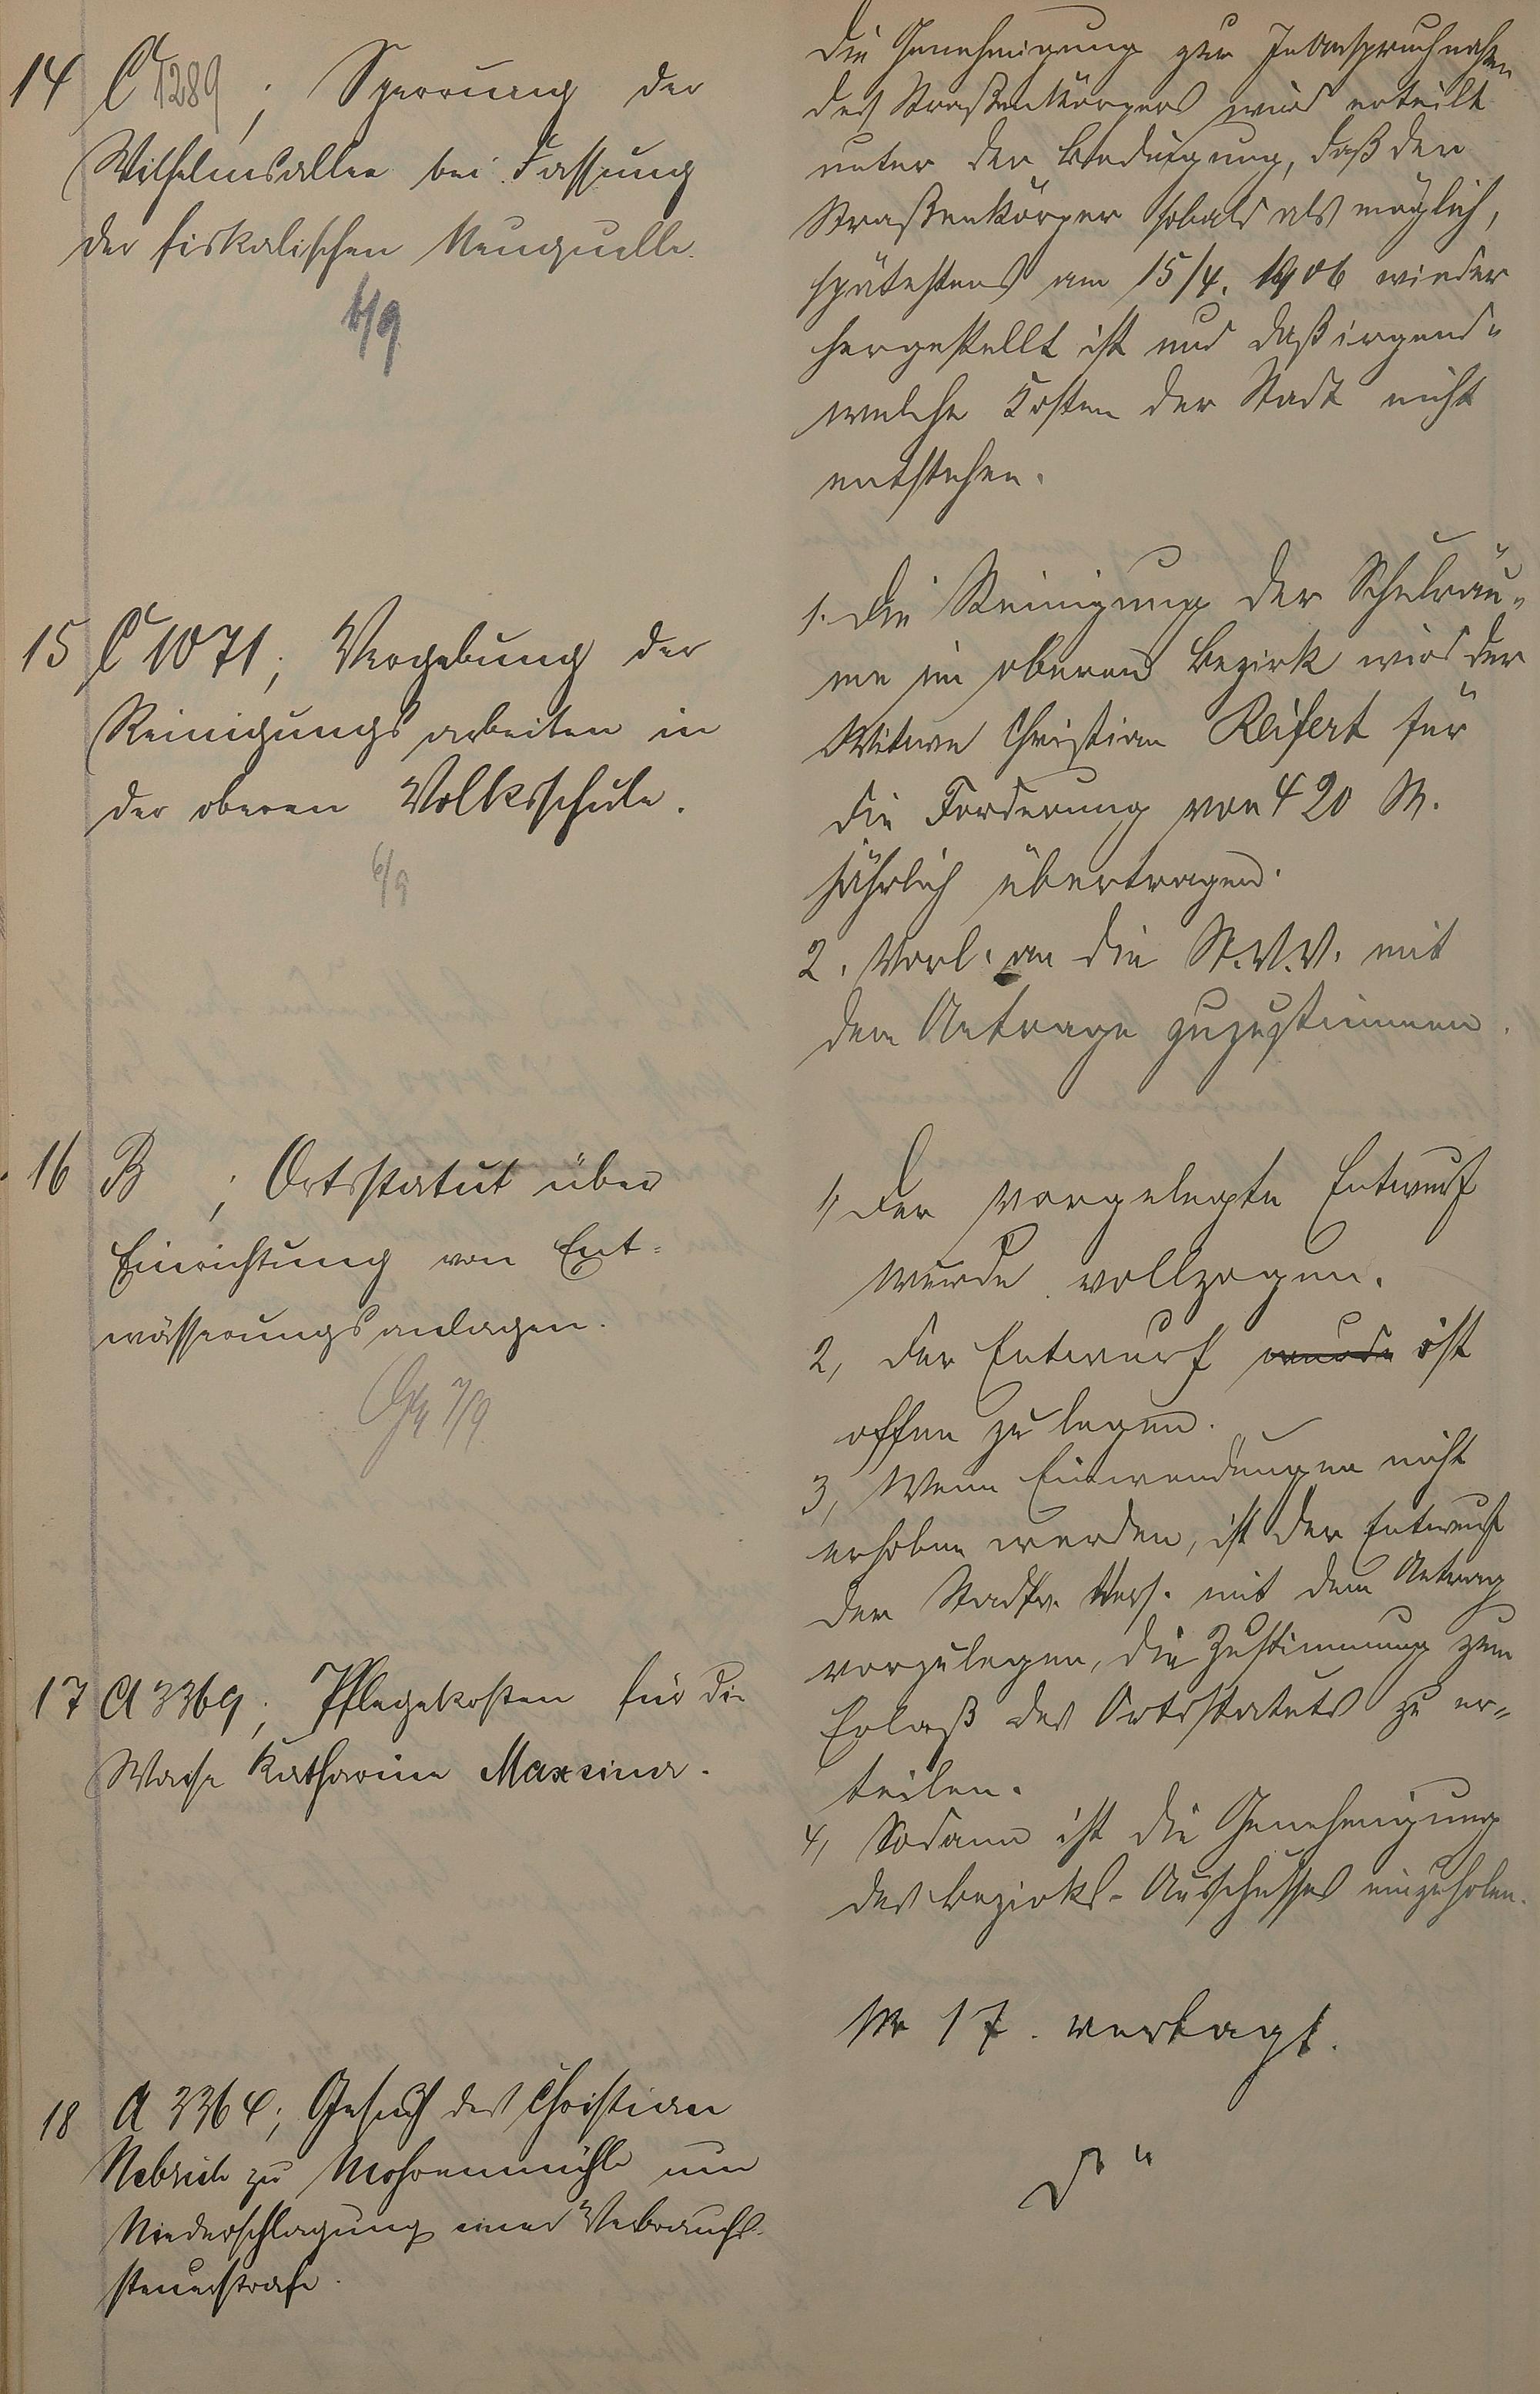 14 C 1289; Sperrung der
Wilhelmsallee bei Fassung
der fiskalischen Neuquelle.
6/9
Die Genehmigung zur Inanspruchnahme
des Straßenkörpers wird erteilt
unter der Bedingung, daß der
Straßenkörper sobald als möglich,
spätestens am 15/4. 1906 wieder
hergestellt ist und daß irgend-
welche Kosten der Stadt nicht
entstehen.
15 C 1071; Vergebung der
Reinigungsarbeiten in
der oberen Volksschule.
6/9
1. Die Reinigung der Schulräu-
me im oberen Bezirk wird der
Witwe Christian Reifert für
die Forderung von 420 M.
jährlich übertragen.
2. Vorl. an die St.V.V. mit
dem Antrage zuzustimmen.
16 B ; Ortsstatut über
Einrichtung von Ent-
wässerungsanlagen.
7/9
1, Der vorgelegte Entwurf
wurde vollzogen.
2, Der Entwurf wurde ist
offen zu legen.
3, Wenn Einwendungen nicht
erhoben werden, ist der Entwurf
der Stadtv. Vers. mit dem Antrag
vorzulegen, die Zustimmung zum
Erlaß des Ortsstatuts zu er-
teilen.
4, Sodann ist die Genehmigung
des Bezirks-Ausschusses einzuholen.
17 A 3369; Pflegekosten für die
Waise Katharine Maxeiner.
Nr 17. vertagt.
18 A 3364; Gesuch des Christian
Nebrich zu Mohrenmühle um
Niederschlagung einer Verbrauchs-
steuerstrafe.